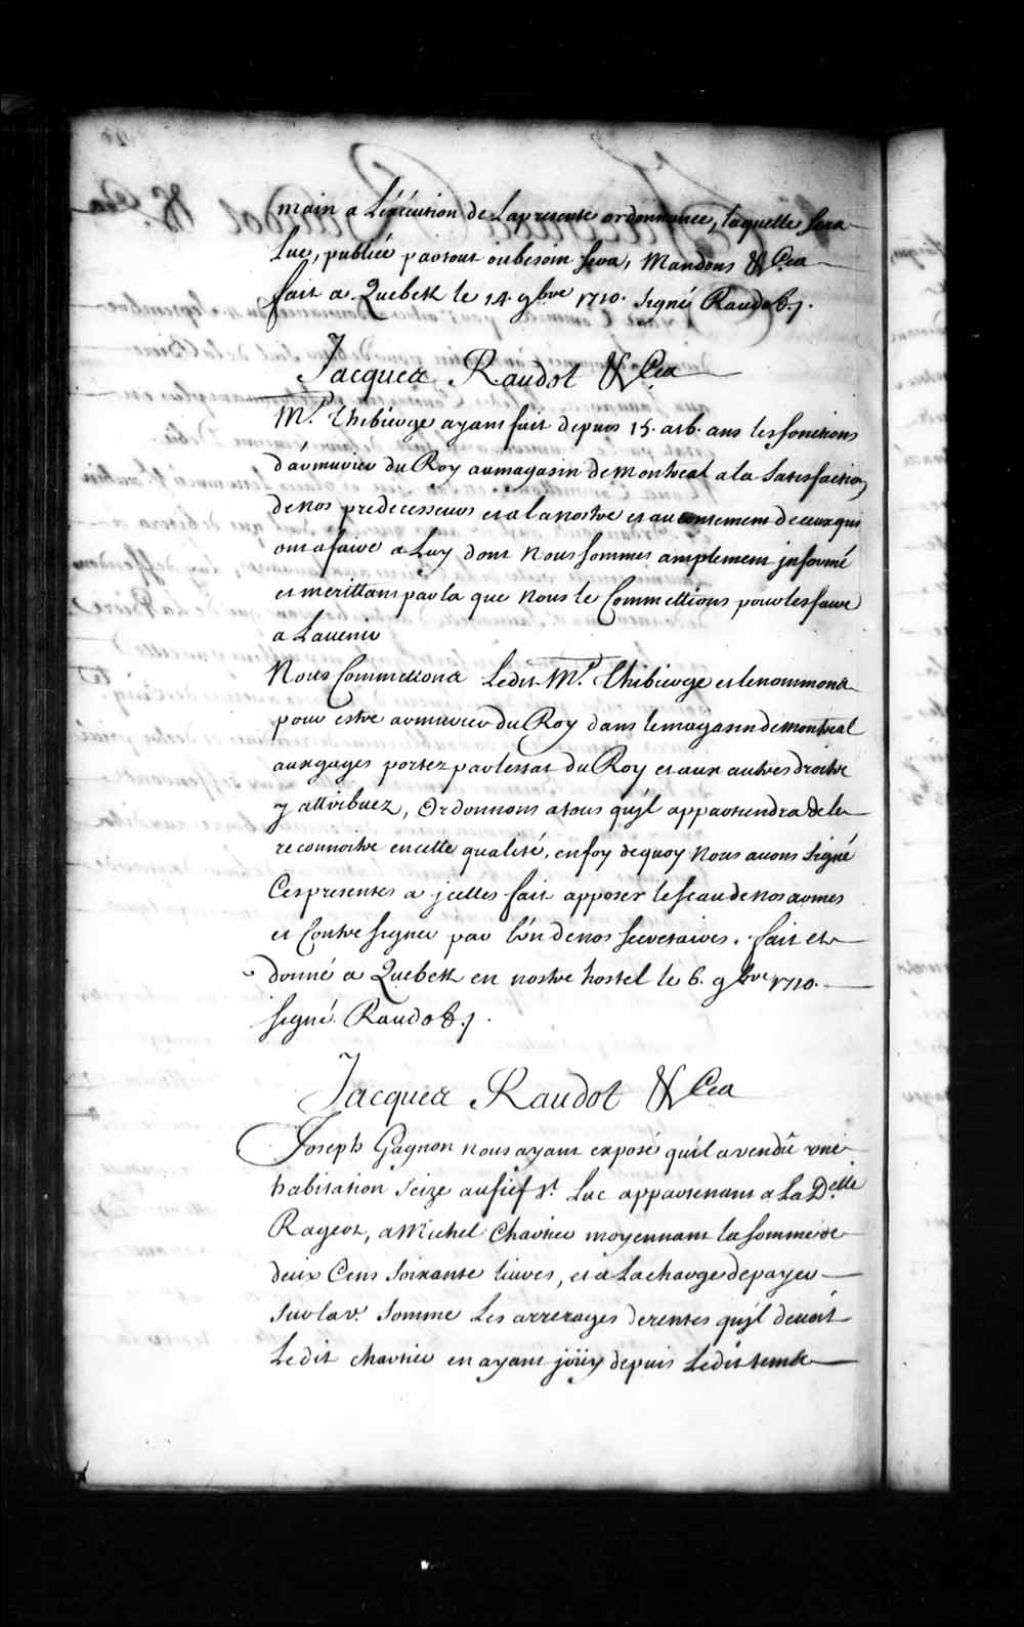 main a L'éxécution de Lapresente ordonnance, laquelle sera
Luë, publiée partout ou besoin sera, Mandons &c.a
fait a Quebek le 14. 9bre 1710. signé Raudot./.
Jacques Raudot &c.a
M.r Thibierge ayant fait depuis 15. a 16. ans les fonctions
d'armurier du Roy au magasin de Montreal a la satisfaction
de nos predecesseurs et a la nostre et au contentement de ceux qui
ont a faire a Luy dont Nous sommes amplement jnformé
et merittant par la que Nous le Commettions pour les faire
a Lavenir
Nous Commettons Ledit M.r Thibierge et le nommons
pour estre armurier du Roy dans le magasin de Montreal
aux gages portez par lestat du Roy et aux autres droits
y attribuez, Ordonnons a tous quil appartiendra de le
reconnoitre en cette qualité, en foy de quoy Nous avons signé
Ces presentes a jcelles fait apposer le sceau de nos armes
et Contre signer par l'un de nos secretaires. fait et
donné a Quebek en nostre hostel le 6. 9bre 1710.
signé Raudot./.
Jacques Raudot &c.a
Joseph Gagnon nous ayant exposé qu'il a vendû une
habitation scize au fief S.t Luc appartenant a La D.elle
Rageot, a Michel Chartier moyennant la somme de
deux Cens soixante livres, et a La charge de payer
sur lad. somme Les arrerages de rentes qu'jl devoit
Ledit chartier en ayant joüy depuis Ledit temps